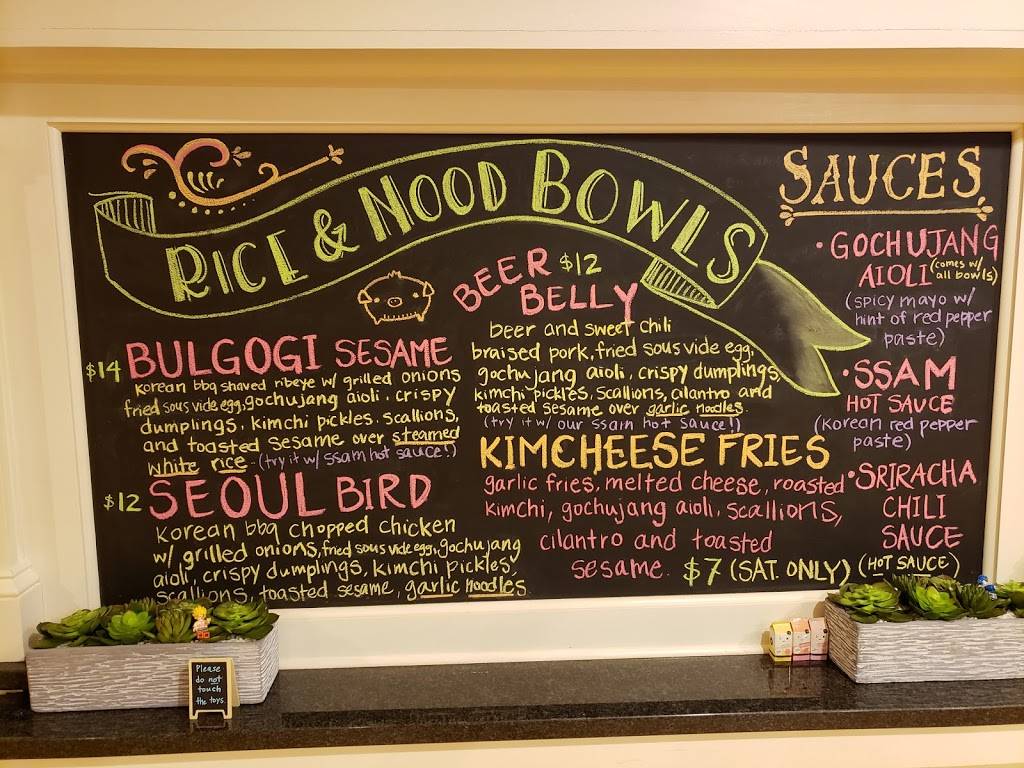 RICE & NOOD BOWLS
$14 BULGOGI SESAME
Korean bbq shaved ribeye w/ grilled onions
fried sous vide egg, gochujang aioli, crispy
dumplings, kimchi pickles, scallions,
and toasted sesame over steamed
white rice (try it w/ ssam hot sauce!)
$12 SEOUL BIRD
Korean bbq chopped chicken
w/ grilled onions, fried sous vide egg, gochujang
aioli, crispy dumplings, kimchi pickles,
scallions, toasted sesame, garlic noodles
BEER $12
BELLY
beer and sweet chili
braised pork, fried sous vide egg,
gochujang aioli, crispy dumplings,
kimchi pickles, scallions, cilantro and
toasted sesame over garlic noodles
(try it w/ our ssam hot sauce!)
KIMCHEESE FRIES
garlic fries, melted cheese, roasted
kimchi, gochujang aioli, scallions,
cilantro and toasted
sesame. $7 (SAT. ONLY)
SAUCES
• GOCHUJANG
AIOLI (comes w/
all bowls)
(spicy mayo w/
hint of red pepper
paste)
• SSAM
HOT SAUCE
(Korean red pepper
paste)
• SRIRACHA
CHILI
SAUCE
(HOT SAUCE)
Please
do not
touch
the toys.